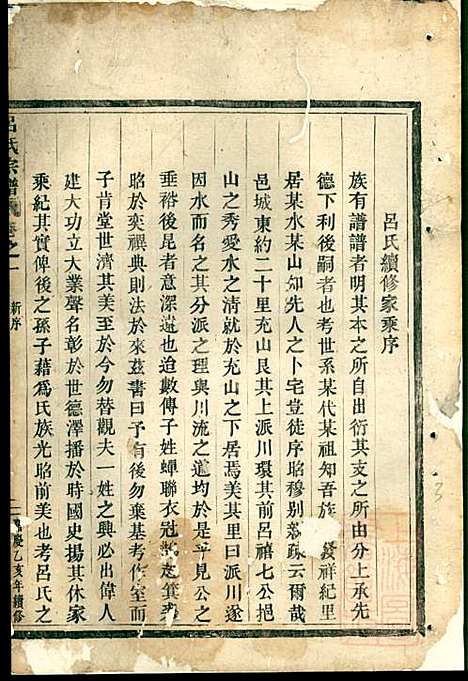 呂氏續修家乘序
族有譜譜者明其本之所自出衍其支之所由分上承先
德下利後嗣者也考世系某代某祖知吾族發祥紀里
居某水某山知先人之卜宅豈徒序昭穆別慕疎云爾哉
邑城東約二十里充山艮其上派川環其前呂禧七公挹
山之秀愛水之清就於充山之下居焉美其里曰派川遂
因水而名之其分派之理與川流之道均於是乎見公之
垂裕後昆者意深遠也迨數傳子姓蟬聯衣冠
昭於奕禩典則法於來茲書曰予有後勿棄基考作室而
子肯堂世濟其美至於今勿替觀夫一姓之興必出偉人
建大功立大業聲名彰於世德澤播於時國史揚其休家
乘紀其實俾後之孫子藉為氏族光昭前美也考呂氏之
呂氏宗譜 卷之一 新序
慶乙亥年續修